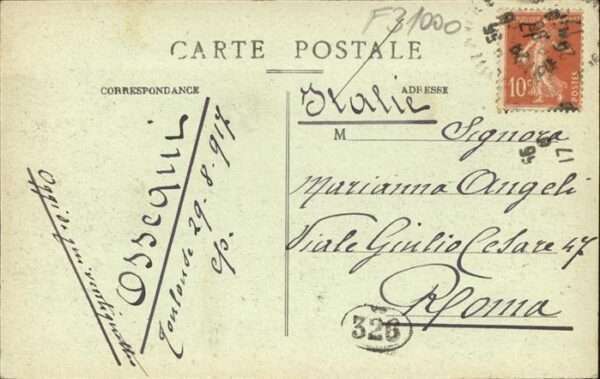 F31000
CARTE POSTALE
CORRESPONDANCE
ADRESSE
Italie
M Signora
Marianna Angeli
Viale Giulio Cesare 47
Roma
Ossequi
Toulouse 29-8-917
Oggi
10c
POSTES
326